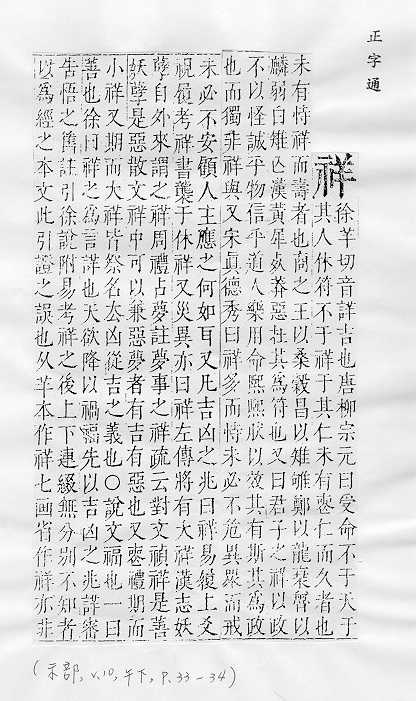 正字通
祥
徐羊切音詳吉也唐柳宗元曰受命不于天于
其人休符不于祥于其仁未有喪仁而久者也
未有恃祥而壽者也商之王以桑穀昌以雉雊鄭以龍衰魯以
麟弱白雉亡漢黃犀死莽惡在其為符也又曰君子之祥以政
不以怪誠乎物信乎道人樂用命熙熙然以效其有斯其為政
也而獨非祥與又宋真德秀曰祥多而恃未必不危異眾而戒
未必不安顧人主應之何如耳又凡吉凶之兆曰祥易履上爻
視履考祥書襲于休祥又災異亦曰祥左傳將有大祥漢志妖
孽自外來謂之祥周禮占夢註夢事之祥疏云對文禎祥是善
妖孽是惡散文祥中可以兼惡夢者有吉有惡也又喪禮期而
小祥又期而大祥皆祭名去凶從吉之義也○說文福也一曰
善也徐曰祥之為言詳也天欲降以禍福先以吉凶之兆詳審
告悟之舊註引徐說附易考祥之後上下連綴無分別不知者
以為經之本文此引證之誤也从羊本作祥七画省作祥亦非
(示部, v.10, 午下, P.33-34)